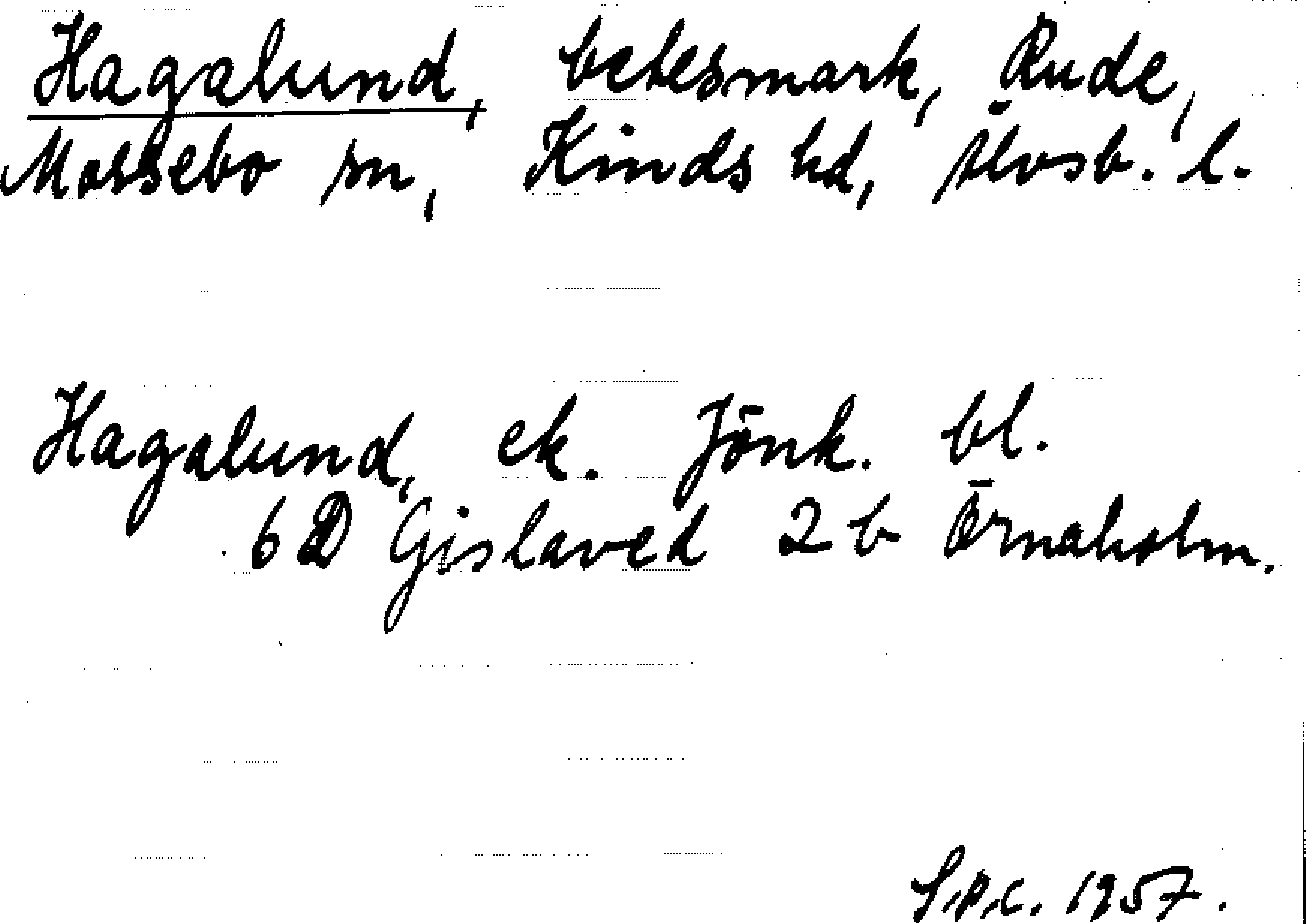 Hagalund, betesmark, Rude,
Mossebo sn, Kinds hd, Älvsb. l.
Hagalund, ek. Jönk. bl.
6 D Gislaved 2 b Örnaholm.
1957.